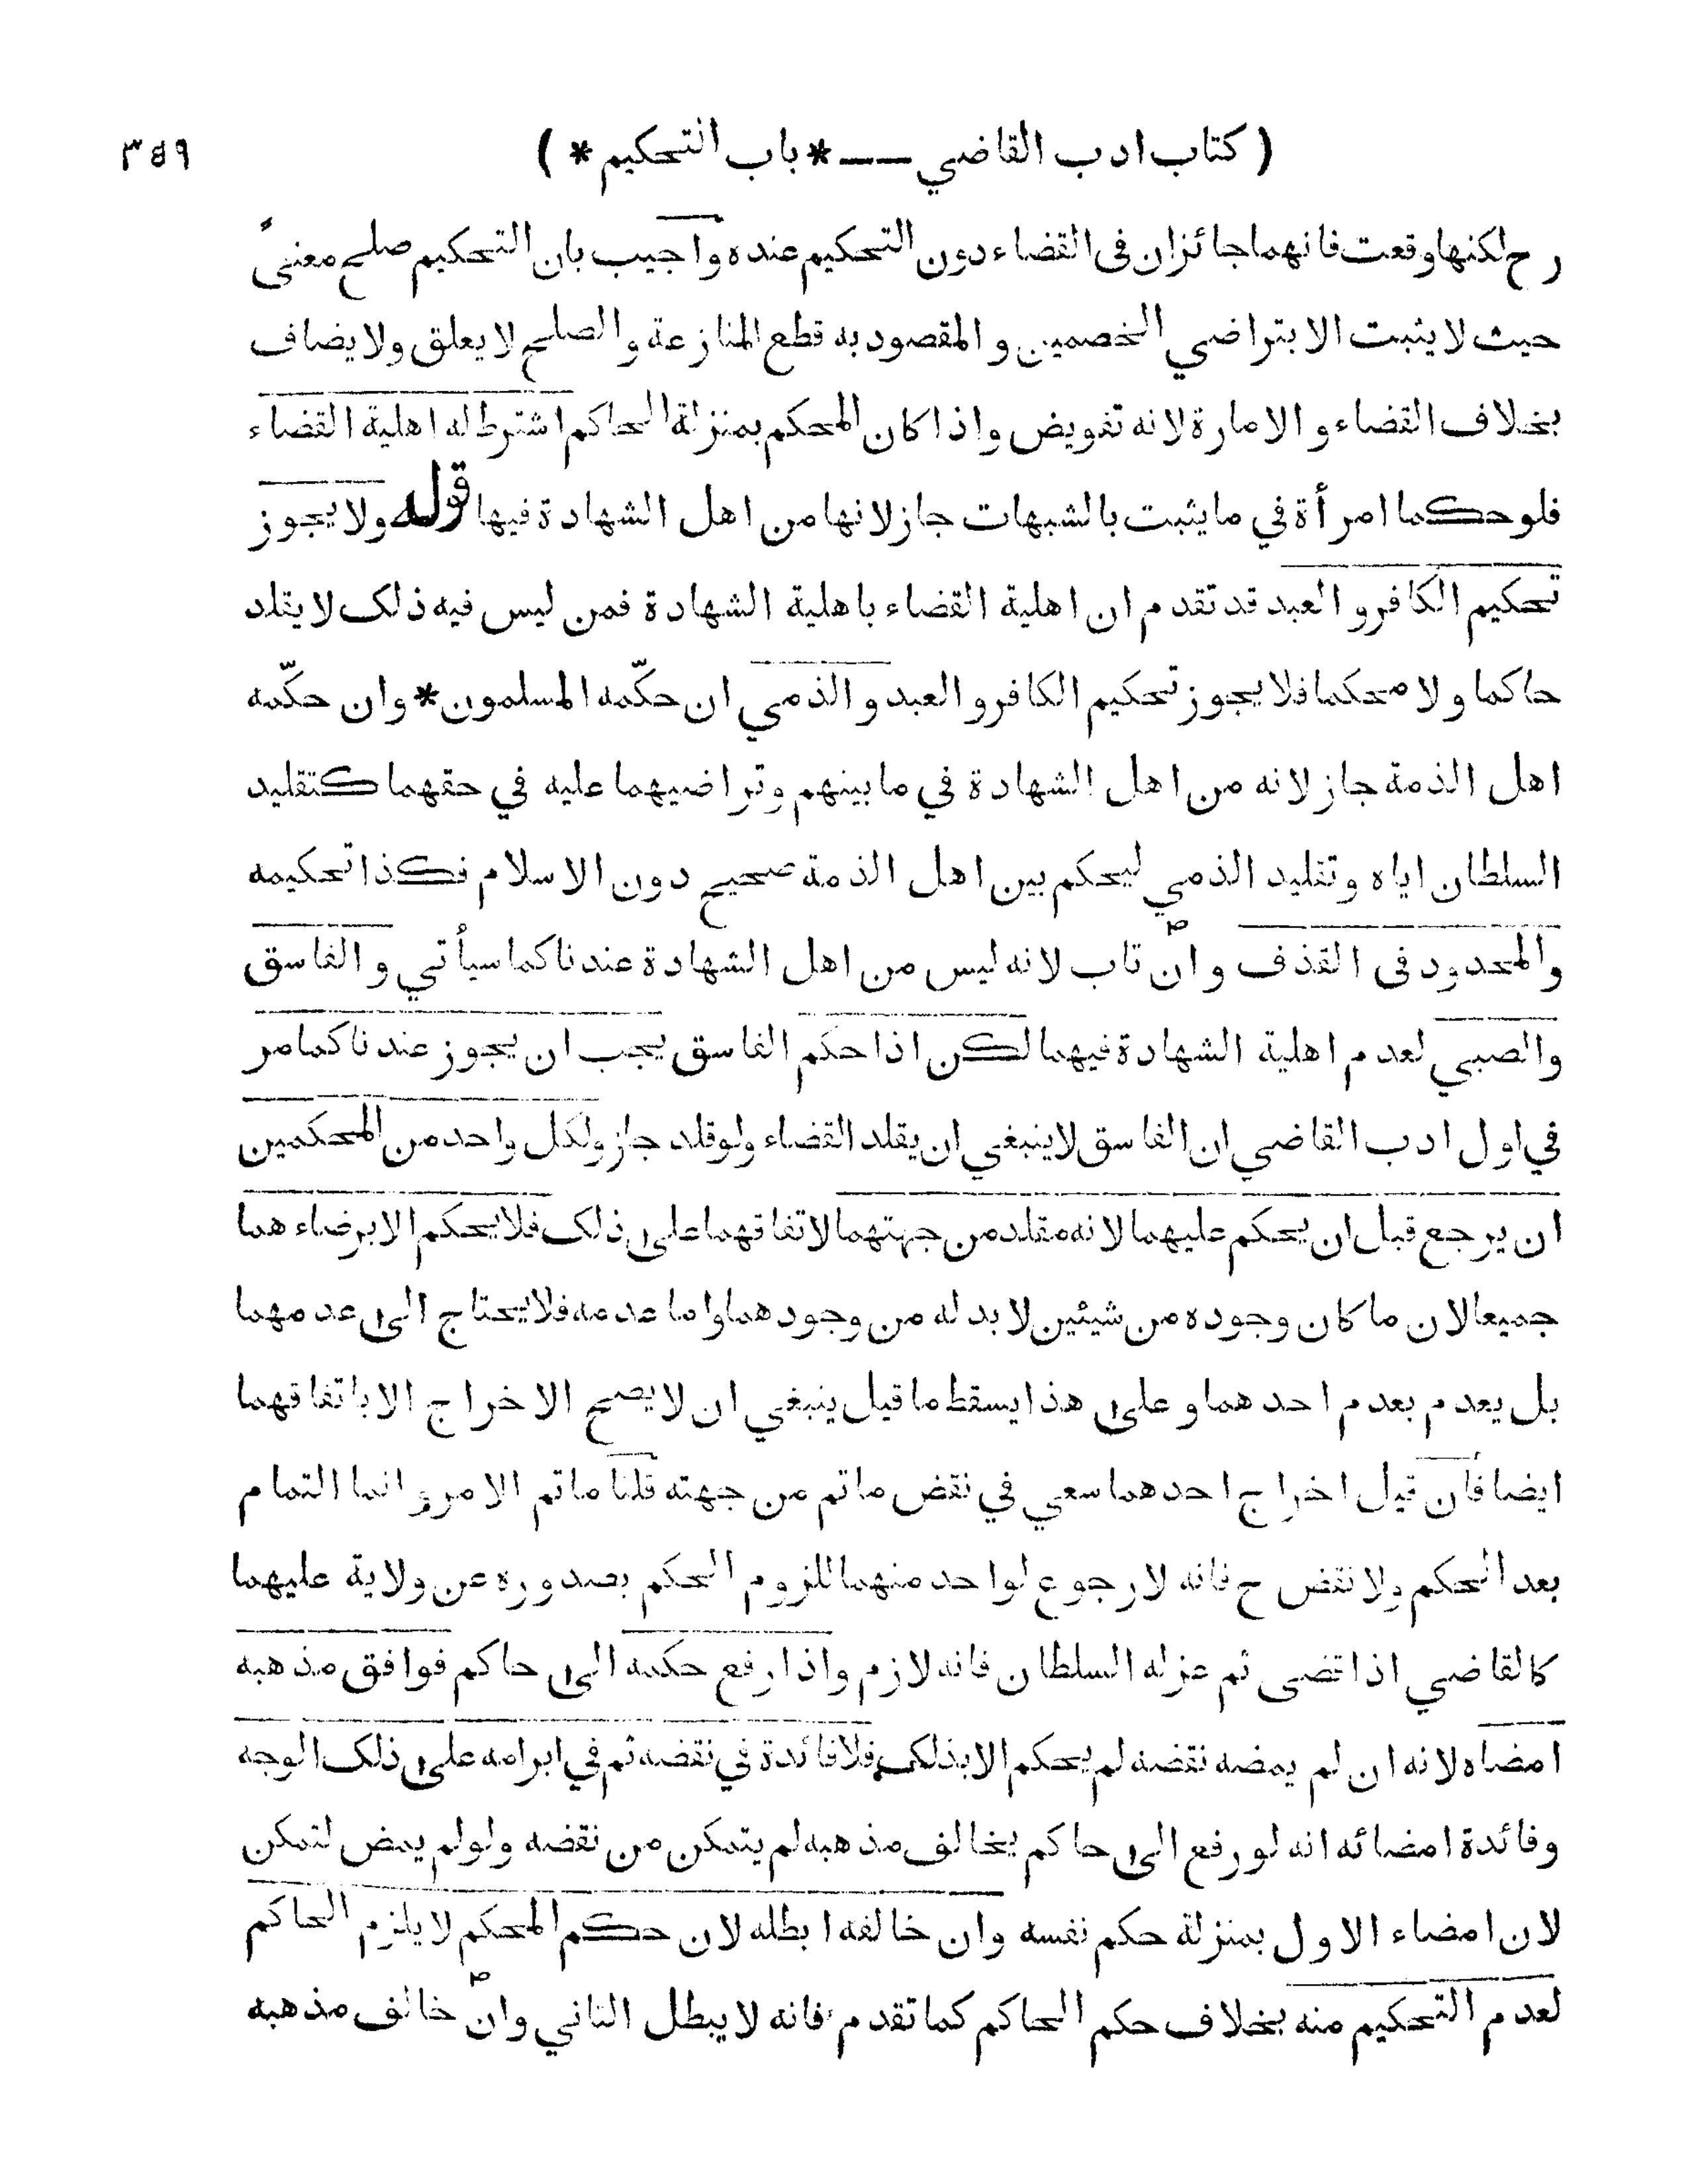 ( كتاب ادب القاضي —— * باب التحكيم * ) ٣٤٩
رح لكنها وقعت فانهما جائزان فى القضاء دون التحكيم عنده واجيب بان التحكيم صلح معنىً
حيث لا يثبت الا بتراضي الخصمين و المقصود به قطع المنازعة والصلح لا يعلق ولا يضاف
بخلاف القضاء و الامارة لانه تفويض واذا كان المحكم بمنزلة الحاكم اشترط له اهلية القضاء
فلو حكما امرأة في ما يثبت بالشبهات جاز لانها من اهل الشهادة فيها قوله ولا يجوز
تحكيم الكافر و العبد قد تقدم ان اهلية القضاء باهلية الشهادة فمن ليس فيه ذلك لا يقلد
حاكما ولا محكما فلا يجوز تحكيم الكافر و العبد و الذمي ان حكّمه المسلمون * وان حكّمه
اهل الذمة جاز لانه من اهل الشهادة في ما بينهم وتراضيهما عليه في حقهما كتقليد
السلطان اياه وتقليد الذمي ليحكم بين اهل الذمة صحيح دون الاسلام فكذا تحكيمه
والمحدود فى القذف وان تاب لانه ليس من اهل الشهادة عندنا كما سيأتي و الفاسق
والصبي لعدم اهلية الشهادة فيهما لكن اذا حكم الفاسق يجب ان يجوز عندنا كما مر
في اول ادب القاضي ان الفاسق لا ينبغي ان يقلد القضاء ولو قلد جاز ولكل واحد من المحكمين
ان يرجع قبل ان يحكم عليهما لانه مقلد من جهتهما لاتفاقهما على ذلك فلا يحكم الا برضاء هما
جميعا لان ما كان وجوده من شيئين لا بد له من وجودهما واما عدمه فلا يحتاج الى عدمهما
بل يعدم بعدم احدهما و على هذا يسقط ما قيل ينبغي ان لا يصح الاخراج الا باتفاقهما
ايضا فان قيل اخراج احدهما سعي في نقض ما تم من جهته قلنا ما تم الامر و انما التمام
بعد الحكم ولا نقض ح فانه لا رجوع لواحد منهما للزوم الحكم بصدوره عن ولاية عليهما
كالقاضي اذا قضى ثم عزله السلطان فانه لازم واذا رفع حكمه الى حاكم فوافق مذهبه
امضاه لانه ان لم يمضه نقضه لم يحكم الا بذلك فلا فائدة في نقضه ثم في ابرامه على ذلك الوجه
وفائدة امضائه انه لو رفع الى حاكم يخالف مذهبه لم يتمكن من نقضه ولو لم يمض لتمكن
لان امضاء الاول بمنزلة حكم نفسه وان خالفه ابطله لان حكم المحكم لا يلزم الحاكم
لعدم التحكيم منه بخلاف حكم الحاكم كما تقدم فانه لا يبطل الثاني وان خالف مذهبه